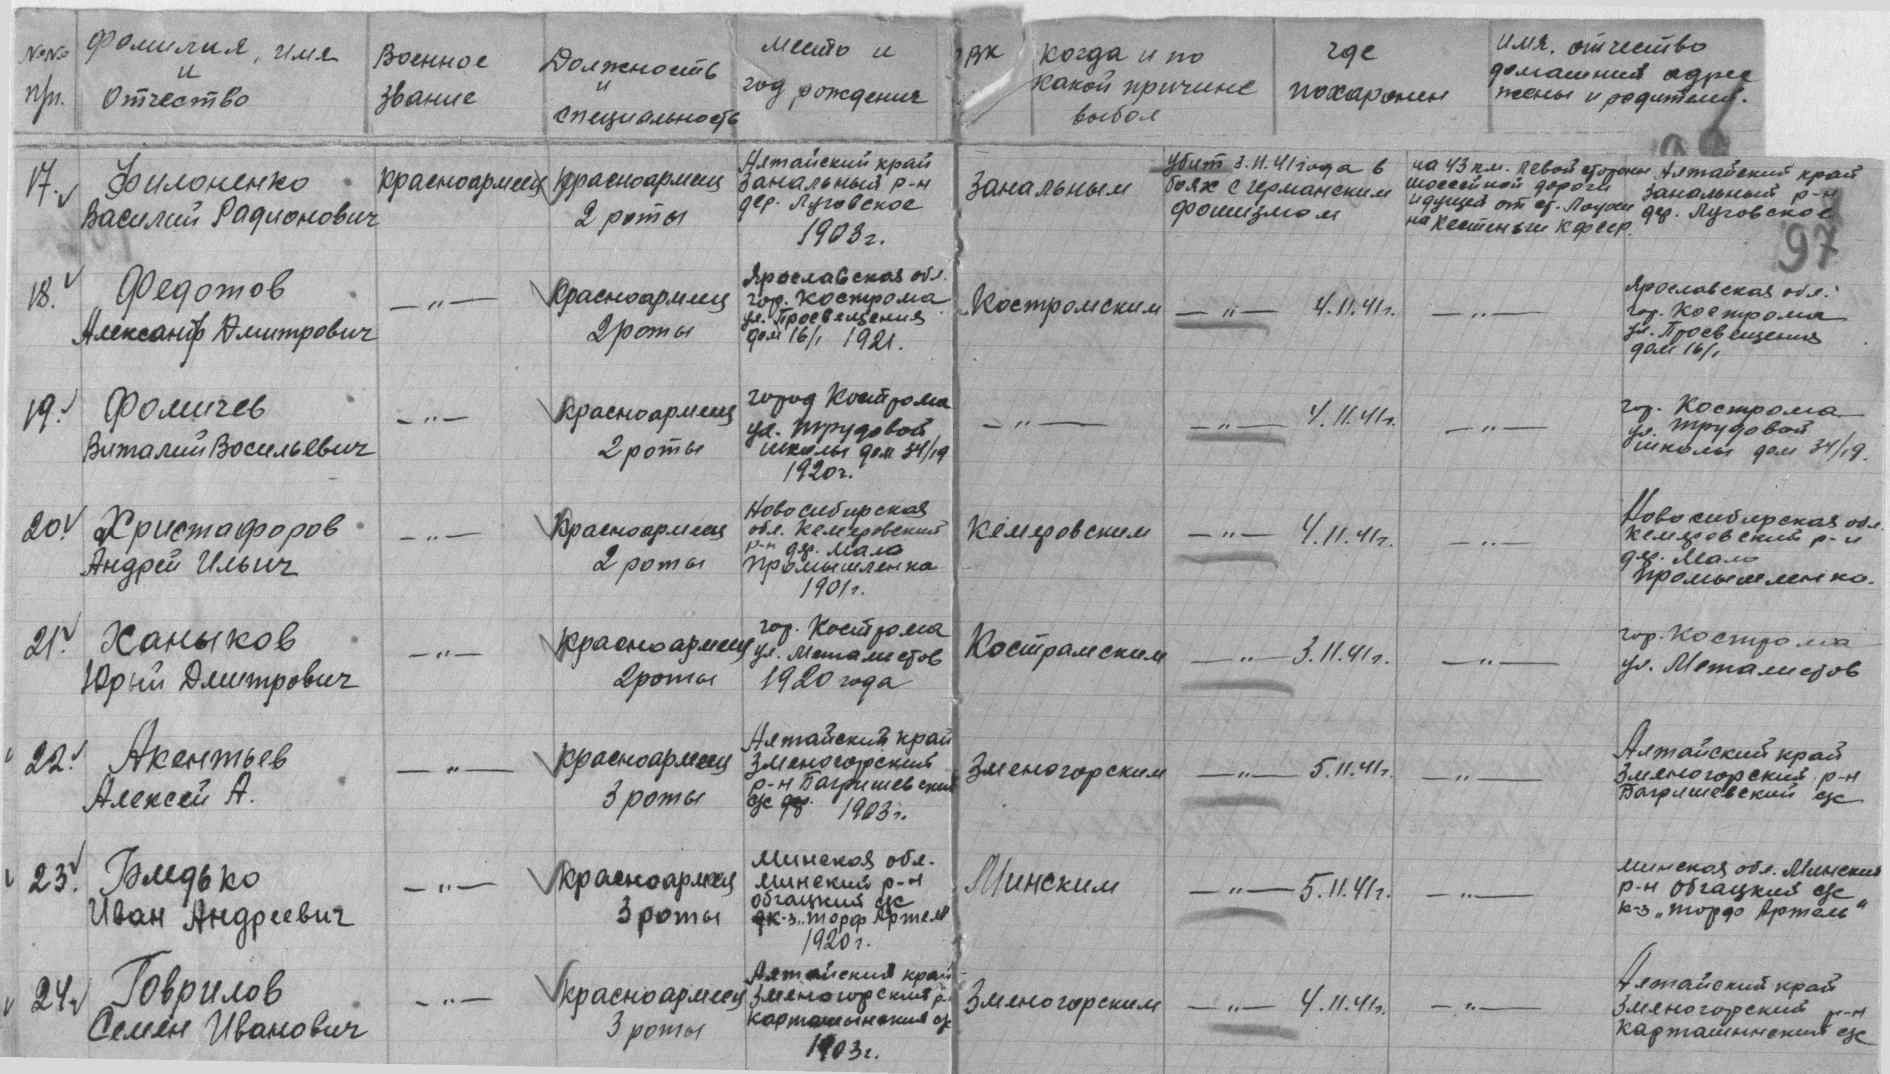 №№ п/п.
Фамилия, имя
и
Отчество
Военное
звание
Должность
и
специальность
Место и
год рождения
РВК
Когда и по
какой причине
выбыл
где
похоронен
имя, отчество
домашний адрес
жены и родителей.
97
17.
Филоненко
Василий Радионович
красноармеец
Красноармеец
2 роты
Алтайский край
Занальный р-н
дер. Луговское
1903г.
Занальным
убит 3.11.41 года в
боях с германским
фашизмом
на 43 км. левой стороны
шоссейной дороги
идущей от ст. Лоухи
на Кестеньги КФССР.
Алтайский край
Занальный р-н
дер. Луговское
18.
Федотов
Александр Дмитрович
— " —
Красноармеец
2 роты
Ярославская обл.
гор. Кострома
ул. Просвещения
дом 16/1 1921.
Костромским
— " — 4.11.41г.
— " —
Ярославская обл.
гор. Кострома
ул. Просвещения
дом 16/1
19.
Фомичев
Виталий Васильевич
— " —
Красноармеец
2 роты
город Кострома
ул. Трудовой
школы дом 34/19
1920г.
— " —
— " — 4.11.41г.
— " —
гор. Кострома
ул. Трудовой
школы дом 34/19.
20.
Христафоров
Андрей Ильич
— " —
Красноармеец
2 роты
Новосибирская
обл. Кемеровский
р-н дер. Мало
Промышленка
1901г.
Кемеровским
— " — 4.11.41г.
— " —
Новосибирская обл.
Кемеровский р-н
дер. Мало
Промышленка.
21.
Ханыков
Юрий Дмитрович
— " —
Красноармеец
2 роты
гор. Кострома
ул. Металистов
1920 года
Костромским
— " — 3.11.41г.
— " —
гор. Кострома
ул. Металистов
22.
Акентьев
Алексей А.
— " —
Красноармеец
3 роты
Алтайский край
Зменогорский
р-н Багришевский
с/с дер. 1903г.
Зменогорским
— " — 5.11.41г.
— " —
Алтайский край
Зменогорский р-н
Багришевский с/с
23.
Бледько
Иван Андреевич
— " —
Красноармеец
3 роты
Минская обл.
Минский р-н
обгацкий с/с
к-з "Торф Артель"
1920г.
Минским
— " — 5.11.41г.
— " —
Минская обл. Минский
р-н обгацкий с/с
к-з "Торф Артель"
24.
Гаврилов
Семен Иванович
— " —
Красноармеец
3 роты
Алтайский край
Зменогорский р-
Карташинский с/с
1903г.
Зменогорским
— " — 4.11.41г.
— " —
Алтайский край
Зменогорский р-н
Карташинский с/с